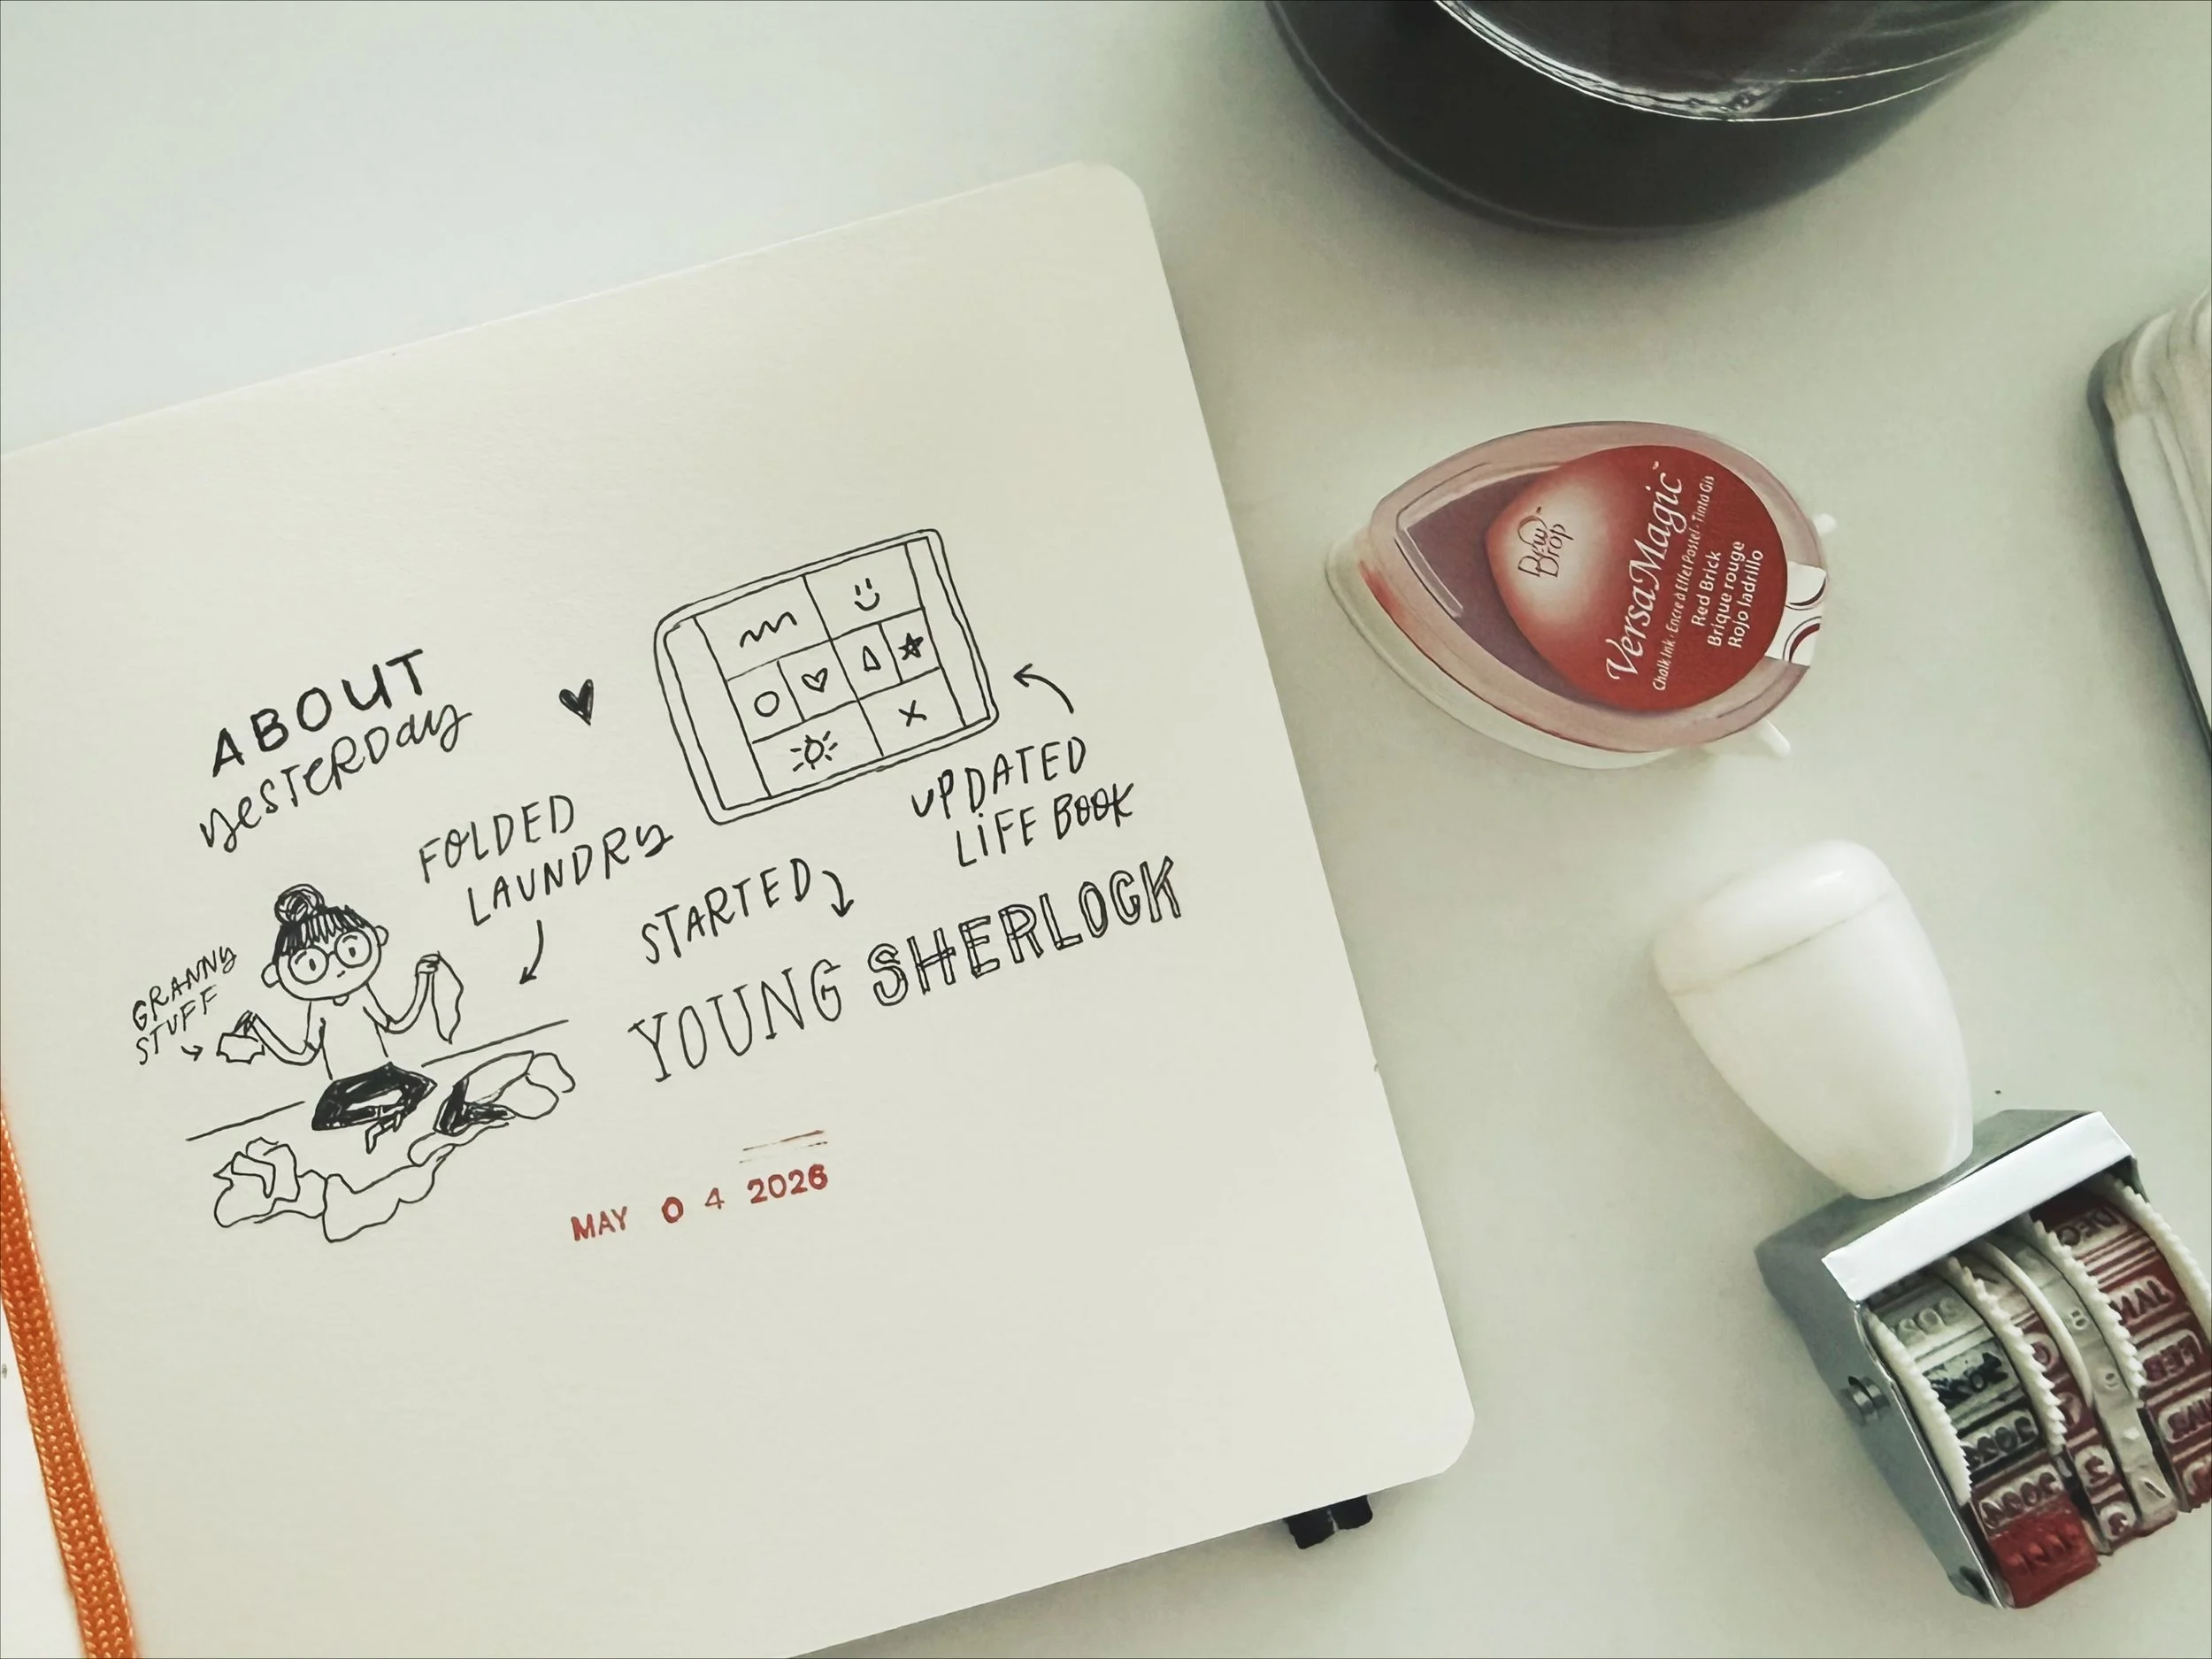 ABOUT
yesterday
FOLDED
LAUNDRY
GRANNY
STUFF
UPDATED
LIFE BOOK
STARTED
YOUNG SHERLOCK
MAY 04 2026
Dew
Drop
VersaMagic
Chalk Ink · Encre à Effet Pastel · Tinta Gis
Red Brick
Brique rouge
Rojo ladrillo
DEC
JAN
FEB